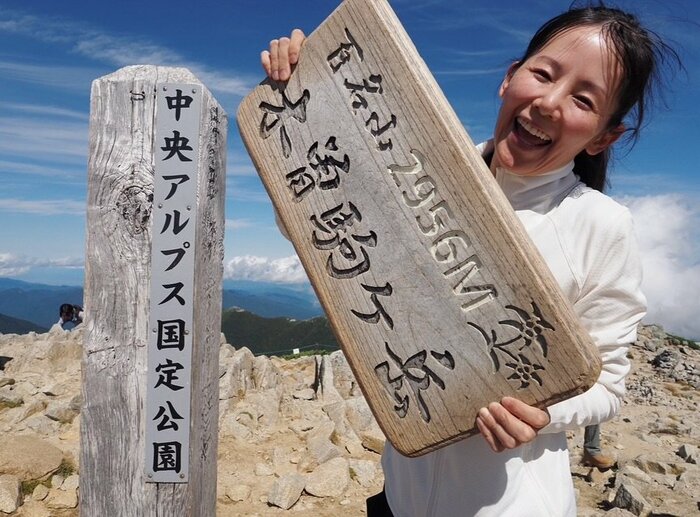 中央アルプス国定公園
百名山 2956M
木曽駒ヶ岳